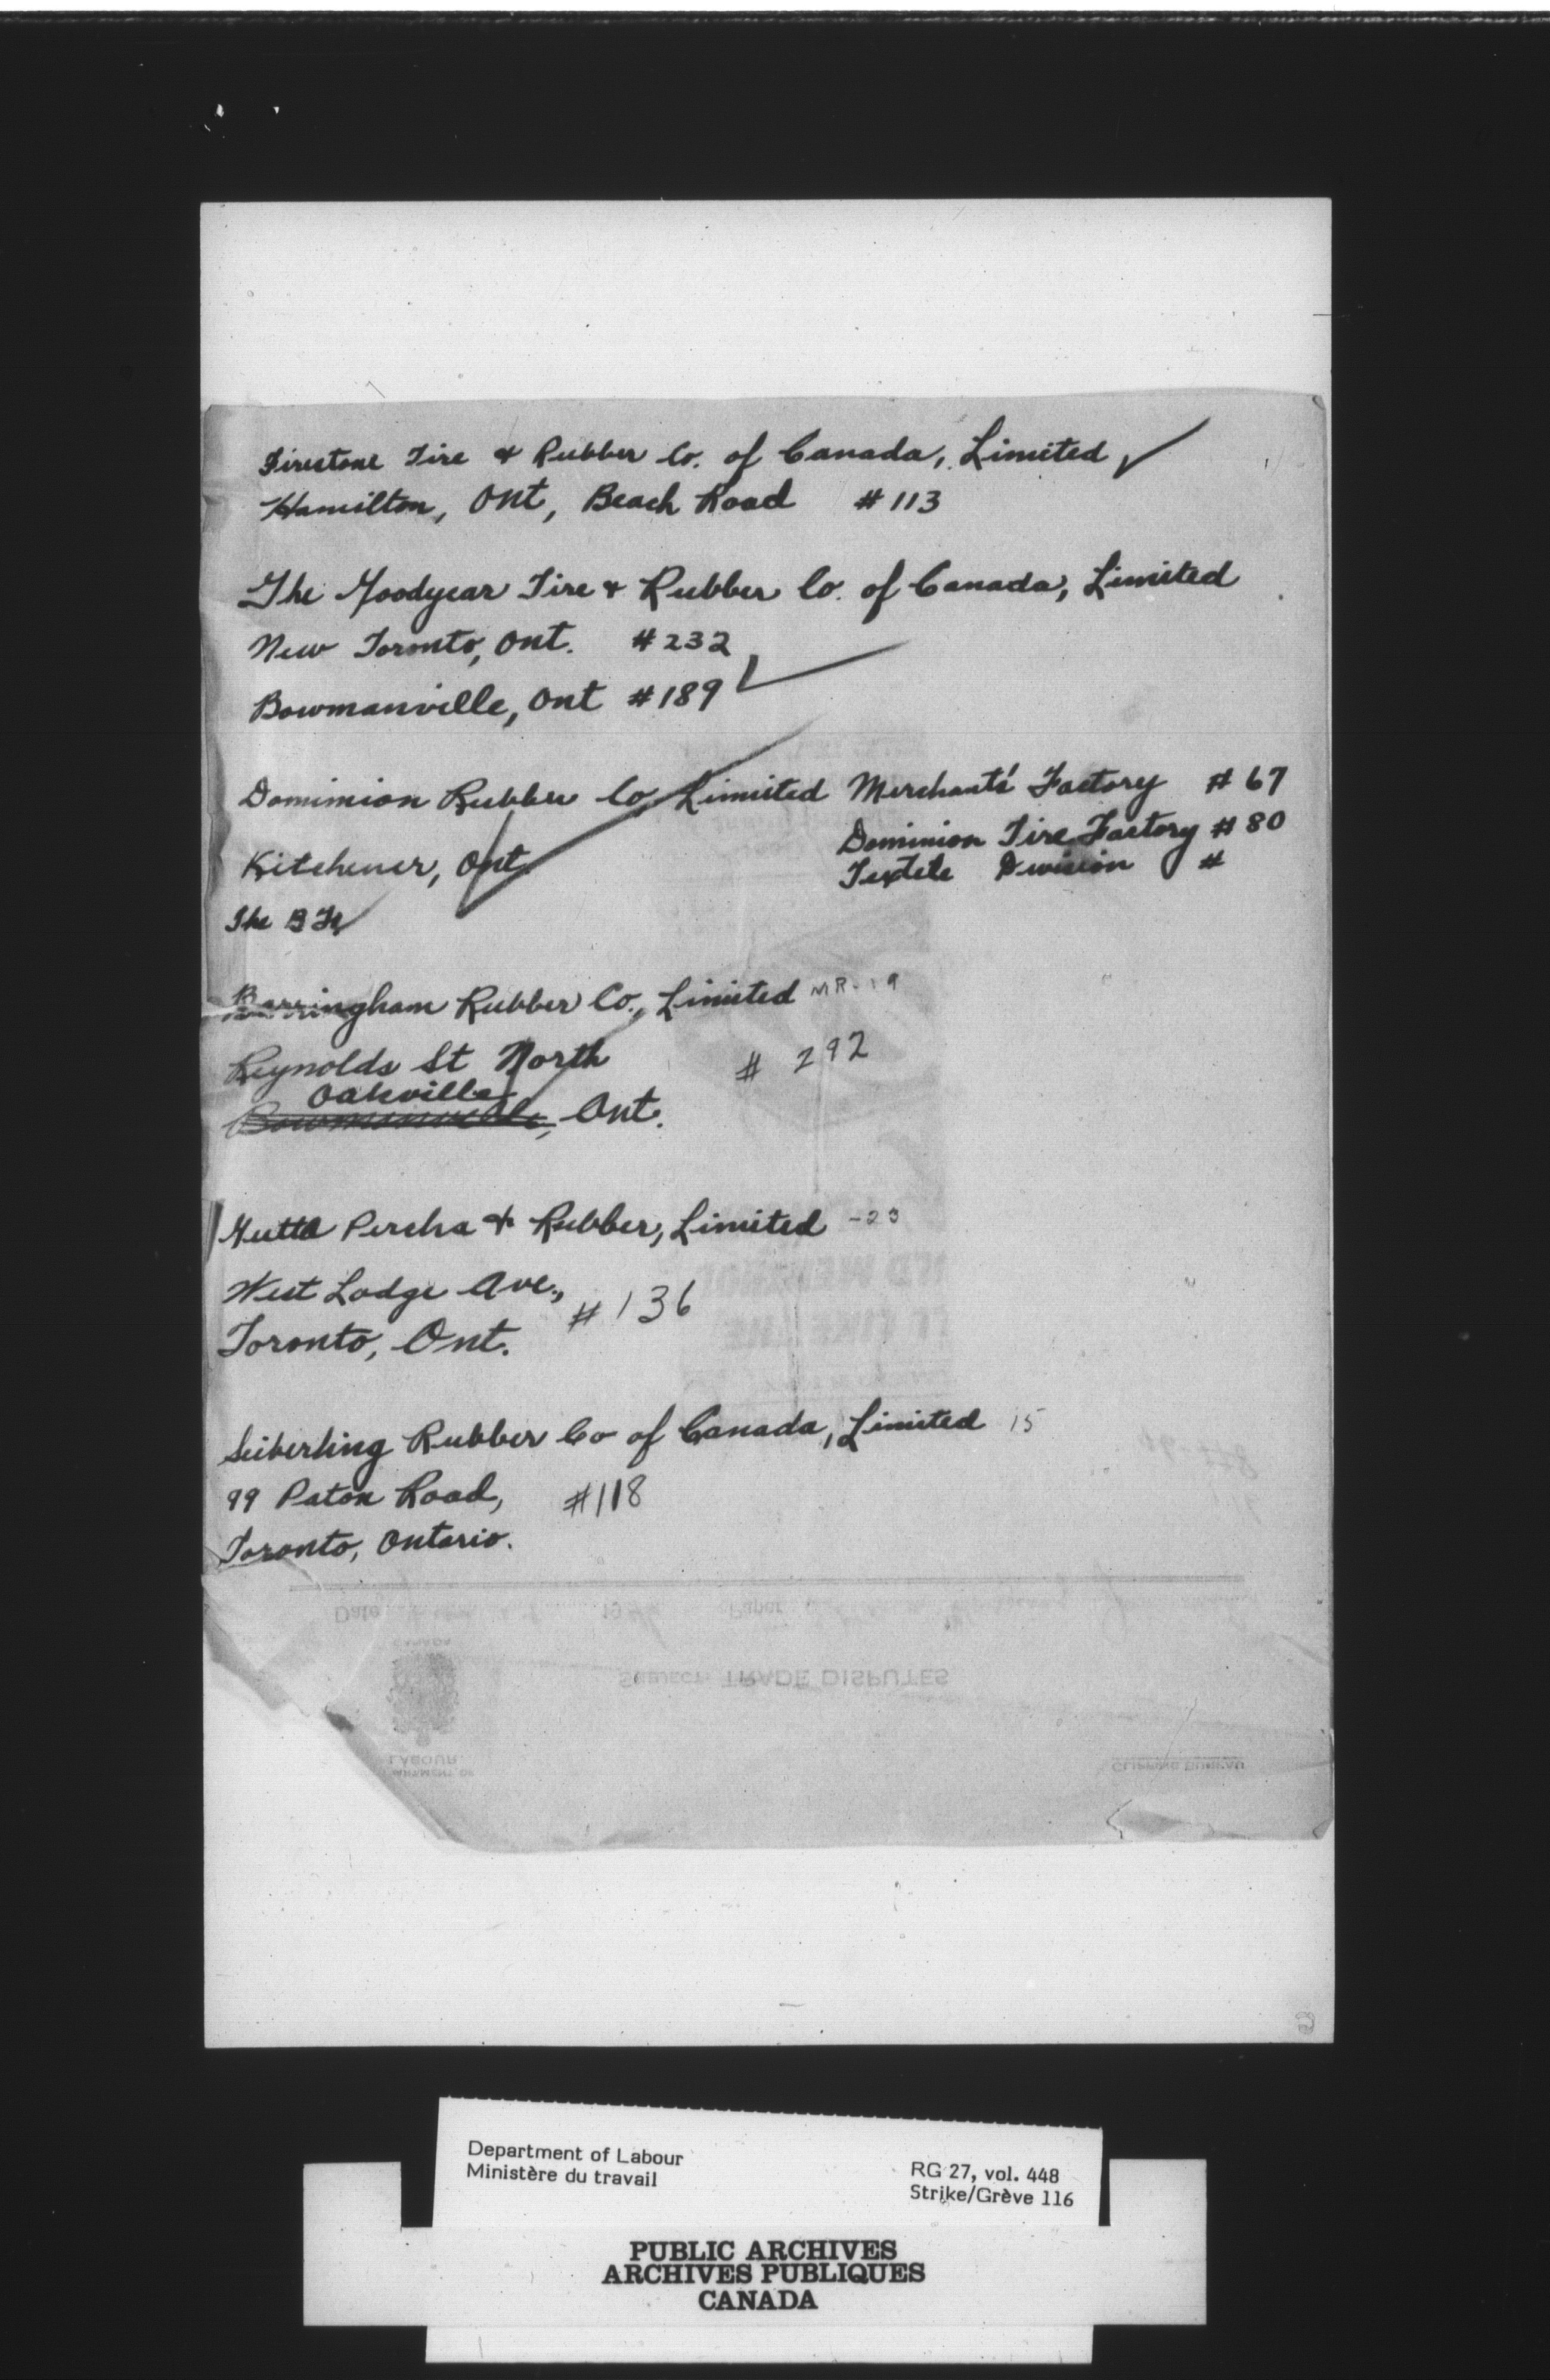 Firestone Tire & Rubber Co. of Canada, Limited ✓
Hamilton, Ont, Beach Road # 113
The Goodyear Tire & Rubber Co. of Canada, Limited
New Toronto, Ont. # 232
Bowmanville, Ont # 189 ✓
Dominion Rubber Co, Limited Merchants' Factory # 67
Dominion Tire Factory # 80
Kitchener, Ont.
Textile Division #
The B F
Barringham Rubber Co., Limited MR-19
Reynolds St North # 292
Oakville
Bowmanville, Ont.
Gutta Percha & Rubber, Limited -23
West Lodge Ave.,
# 136
Toronto, Ont.
Seiberling Rubber Co of Canada, Limited 15
99 Paton Road, #118
Toronto, Ontario.
Date 19 Paper
CANADA
SUBJECT: TRADE DISPUTES
LABOUR
CLIPPING BUREAU
Department of Labour
Ministère du travail
RG 27, vol. 448
Strike/Grève 116
PUBLIC ARCHIVES
ARCHIVES PUBLIQUES
CANADA